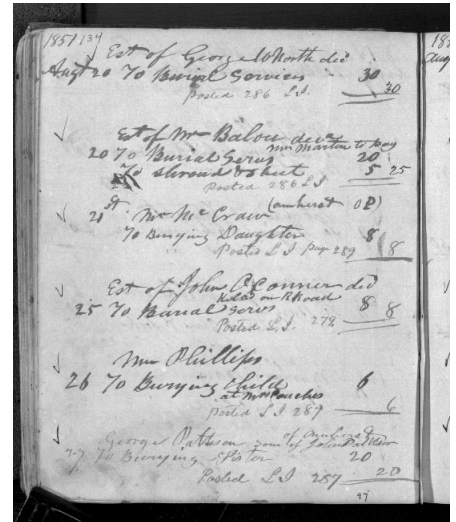 1851 134
Est of George W North dec
Augt 20 To Burial Services 30
Posted 286 L I. 30
Est of Mr Balou decd
Mrs Martin to pay
20 To Burial Servs 20
To shroud & 5 25
Posted 286 L I
21st Mr McCraw (amherst OP)
To Burying Daughter 8
Posted L I Page 289 8
Est of John O Conner dec
Killed on R Road
25 To Burial Servs 8 8
Posted L I. 279
Mrs Phillips
26 To Burying Child 6
at Mrs Pouches
Posted L I 289 6
George Patteson son of John Patteson
of Amherst
27 To Burying Sister 20
Posted L I 287 20
97
185
Aug